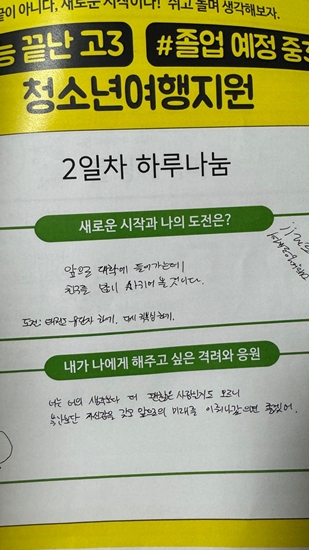 끝이 아니다, 새로운 시작이다! 쉬고 놀며 생각해보자.
능 끝난 고3
#졸업 예정 중3
청소년여행지원
2일차 하루나눔
새로운 시작과 나의 도전은?
앞으로 대학에 들어가는데
친구를 많이 사귀어 볼 것입니다.
도전: 하기. 다시 하기.
내가 나에게 해주고 싶은 격려와 응원
너는 너의 생각보다 더 괜찮은 사람인지도 모르니
자신감을 갖고 앞으로의 미래를 이뤄나갔으면 좋겠어.